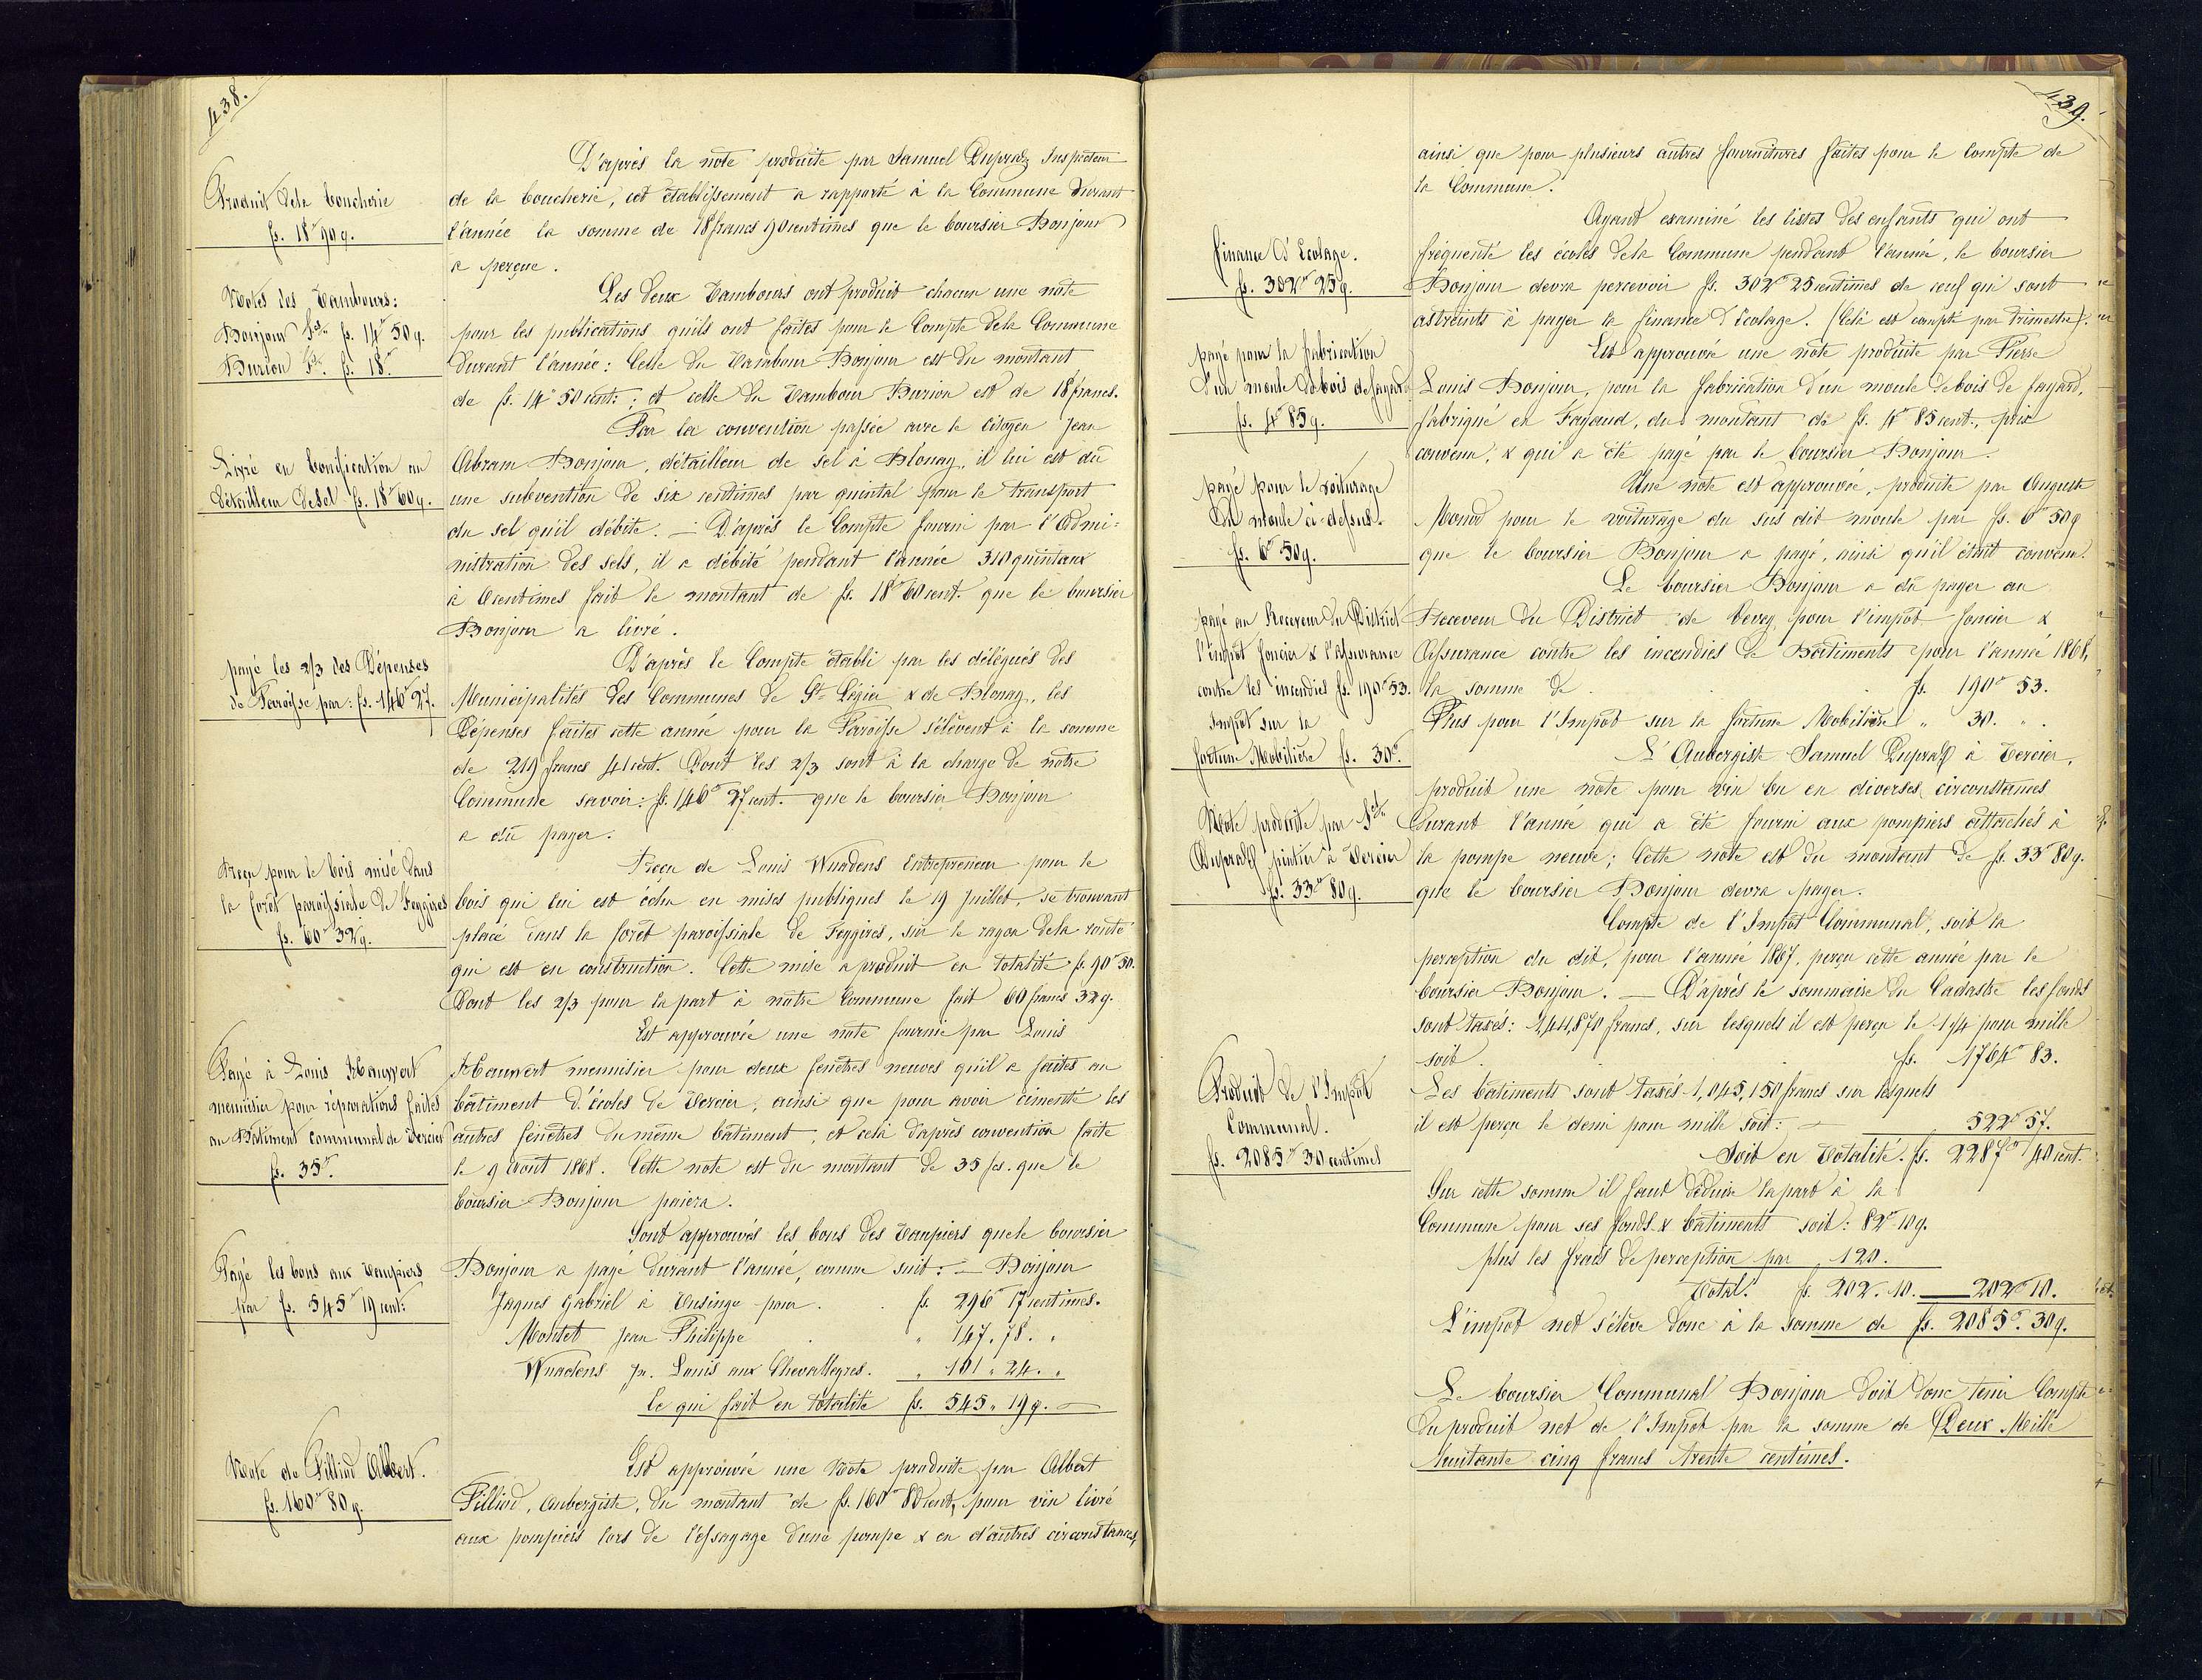 438.
Produit dela boucherie
fs. 18" 90 g.
D'après la note produite par Samuel Dupraz Inspecteur
de la boucherie, cet établissement a rapporté à la Commune durant
l'année la somme de 18 francs 90 centimes que le boursier Bonjour
a perçue.
Notes des Tambours:
Bonjour fs. 14" 50 g.
Burion fs. 18."
Les deux Tambours ont produit chacun une note
pour les publications qu'ils ont faites pour le Compte dela Commune
durant l'année: Celle du Tambour Bonjour est du montant
de fs. 14" 50 cent: ; et celle du Tambour Burion est de 18 francs.
Livré en bonification au
détailleur de sel fs. 18" 60 g.
Par la convention passée avec le citoyen Jean
Abram Bonjour, détailleur de sel à Blonay, il lui est dû
une subvention de six centimes par quintal pour le transport
du sel qu'il débite. — D'après le Compte fourni par l'Admi:
nistration des sels, il a débité pendant l'année 310 quintaux
à 6 centimes fait le montant de fs. 18" 60 cent. que le boursier
Bonjour a livré.
payé les 2/3 des Dépenses
de Paroisse par: fs. 146" 27.
D'après le Compte établi par les délégués des
Municipalités des Communes de St Légier & de Blonay, les
Dépenses faites cette année pour la Paroisse s'élèvent à la somme
de 219 francs 41 cent. Dont les 2/3 sont à la charge de notre
Commune savoir: fs. 146" 27 cent. que le boursier Bonjour
a dû payer.
Reçu pour le bois misé dans
la forêt paroissiale de Feygires
fs. 60" 32 g.
Reçu de Louis Wuadens Entrepreneur pour le
bois qui lui est échu en mises publiques le 19 Juillet, se trouvant
placé dans la forêt paroissiale de Feygires, sur le rayon dela route
qui est en construction. Cette mise a produit en totalité fs. 90" 50.
Dont les 2/3 pour la part à notre Commune fait 60 francs 32 g.
Payé à Louis Mauwert
menuisier pour réparations faites
au Bâtiment communal de Tercier
fs. 35."
Est approuvée une note fournie par Louis
Mauwert menuisier pour deux fenêtres neuves qu'il a faites au
bâtiment d'écoles de Tercier, ainsi que pour avoir cimenté les
autres fenêtres du même bâtiment, et cela d'après convention faite
le 9 Août 1868. Cette note est du montant de 35 fs. que le
boursier Bonjour paiera.
Payé les bons aux Taupiers
par fs. 545" 19 cent:
Sont approuvés les bons des Taupiers que le boursier
Bonjour a payé durant l'année, comme suit: — Bonjour
Jaques Gabriel à Tusinge pour . . fs. 296" 17 centimes.
Montet Jean Philippe . " 147. 78. "
Wuadens Jn. Louis aux Chevalleyres. " 101 " 24. "
Ce qui fait en totalité fs. 545 " 19 g. —
Note de Pilliod Albert.
fs. 160" 80 g.
Est approuvée une Note produite par Albert
Pilliod, Aubergiste, du montant de fs. 160" 80 cent, pour vin livré
aux pompiers lors de l'essayage d'une pompe & en d'autres circonstances,
439.
ainsi que pour plusieurs autres fournitures faites pour le compte de
la Commune.
Finance d'Ecolage.
fs. 302" 25 g.
Ayant examiné les listes des enfants qui ont
fréquenté les écoles dela Commune pendant l'année, le boursier
Bonjour devra percevoir fs. 302" 25 centimes de ceux qui sont
astreints à payer la finance d'écolage. (Cela est compté par trimestre).
payé pour la fabrication
d'un moule de bois de fayard
fs. 4" 85 g.
Est approuvée une note produite par Pierre
Louis Bonjour, pour la fabrication d'un moule de bois de fayard,
fabriqué en Fayaud, du montant de fs. 4" 85 cent., prix
convenu, & qui a été payé par le boursier Bonjour.
payé pour le voiturage
du moule ci-dessus.
fs. 6" 50 g.
Une note est approuvée, produite par Auguste
Monod pour le voiturage du sus dit moule par fs. 6" 50 g
que le boursier Bonjour a payé, ainsi qu'il était convenu.
payé au Receveur du District
l'impôt foncier & l'assurance
contre les incendies fs. 190" 53.
Impôt sur la
fortune Mobilière fs. 30."
Le boursier Bonjour a dû payer au
Receveur du District de Vevey pour l'impôt foncier &
Assurance contre les incendies de Bâtiments pour l'année 1868,
la somme de . . . fs. 190" 53.
Plus pour l'Impôt sur la fortune Mobilière " 30. " .
Note produite par Sel
Dupraz pintier à Tercier
fs. 33" 80 g.
L'Aubergiste Samuel Dupraz à Tercier,
produit une note pour vin bu en diverses circonstances
durant l'année qui a été fourni aux pompiers attachés à
la pompe neuve; Cette note est du montant de fs. 33" 80 g.
que le boursier Bonjour devra payer.
Compte de l'Impôt Communal, soit la
perception du dit, pour l'année 1867, perçu cette année par le
boursier Bonjour. — D'après le sommaire du Cadastre les fonds
sont taxés: 1,411,870 francs, sur lesquels il est perçu le 1 1/4 pour mille
soit . . fs. 1764" 83.
Produit de l'Impôt
Communal.
fs. 2085" 30 centimes
Les bâtiments sont taxés 1,045,150 francs sur lesquels
il est perçu le demi pour mille soit: — 522" 57.
Soit en Totalité. fs. 2287" 40 cent.
Sur cette somme il faut déduire la part à la
Commune pour ses fonds & bâtiments soit: 82" 10 g.
plus les frais de perception par 120.
Total. fs. 202. 10. — 202" 10.
L'impôt net s'élève donc à la somme de fs. 2085". 30 g.
Le boursier Communal Bonjour doit donc tenir Compte
du produit net de l'Impôt par la somme de Deux Mille
huitante cinq francs trente centimes.